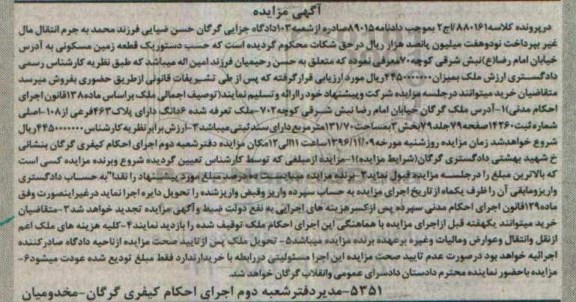 آگهی مزایده
درپرونده کلاسه۸۸۰۱۶۱/اج۲ بموجب دادنامه۸۹۰۱۵صادره ازشعبه۱۰۳دادگاه جزایی گرگان حسن ضیایی فرزند محمد به جرم انتقال مال
غیر بپرداخت نودوهفت میلیون پانصد هزار ریال درحق شکات محکوم گردیده است که حسب دستوریک قطعه زمین مسکونی به آدرس
خیابان امام رضا(ع)نبش شرقی کوچه۷۰معرفی نموده که متعلق به حسن رحیمیان فرزند امین اله میباشد که طبق نظریه کارشناس رسمی
دادگستری ارزش ملک بمیزان۴۴۵۰۰۰۰۰۰۰ریال مورد ارزیابی قرارگرفته که پس از طی تشریفات قانونی ازطریق حضوری بفروش میرسد
متقاضیان خرید میتوانند درجلسه مزایده شرکت وپیشنهاد خودراارائه وتسلیم نمایند(توصیف اجمالی ملک براساس ماده۱۳۸قانون اجرای
احکام مدنی)۱-آدرس ملک گرگان خیابان امام رضا نبش شرقی کوچه۷۰۲-ملک تعرفه شده ۶دانگ دارای پلاک۴۶۳فرعی از۱۰۸-اصلی
شماره ثبت۱۴۲۶۰صفحه۷۹جلد۷۹بخش۳بمساحت۱۳۱/۷۰مترمربع دارای سند ثبتی میباشد۳-ارزش برابر نظریه کارشناس۴۴۵۰۰۰۰۰۰۰ریال
شروع خواهدشد زمان مزایده روزشنبه مورخه۱۳۹۶/۱۱/۰۹ساعت۱۱الی۱۲مکان مزایده دفترشعبه دوم اجرای احکام کیفری گرگان بنشانی
خ شهید بهشتی دادگستری گرگان(شرایط مزایده)۱-مزایده ازمبلغی که توسط کارشناس تعیین گردیده شروع وبرنده مزایده کسی است
که بالاترین مبلغ را درجلسه مزایده قبول نماید۲-برنده مزایده میبایست ده درصد مبلغ مورد پیشنهاد را نقدا"به حساب دادگستری
واریزومابقی آن را ظرف یکماه ازتاریخ اجرای مزایده به حساب سپرده واریز وقبض واریزشده را تحویل دایره اجرا نماید درغیراینصورت وفق
ماده۱۲۹قانون اجرای احکام مدنی سپرده پس ازکسرهزینه های اجرایی به نفع دولت ضبط وآگهی مزایده تجدید خواهد شد۳-متقاضیان
خرید میتوانند یکهفته قبل ازاجرای مزایده با هماهنگی این اجرای احکام ملک توقیف شده را بازدید نمایند۴-کلیه هزینه های ملک اعم
ازنقل وانتقال وعوارض ومالیات وغیره برعهده برنده مزایده میباشد۵- تحویل ملک پس ازتایید صحت مزایده ازناحیه دادگاه صادرکننده
اجرائیه خواهد بود درصورت عدم تایید صحت مزایده این اجرا مسئولیتی دررابطه با خریدارندارد فقط مبلغ تودیع شده عودت میشود۶-
مزایده باحضور نماینده محترم دادستان دادسرای عمومی وانقلاب گرگان خواهد شد.
۵۳۵۱-مدیردفترشعبه دوم اجرای احکام کیفری گرگان-مخدومیان